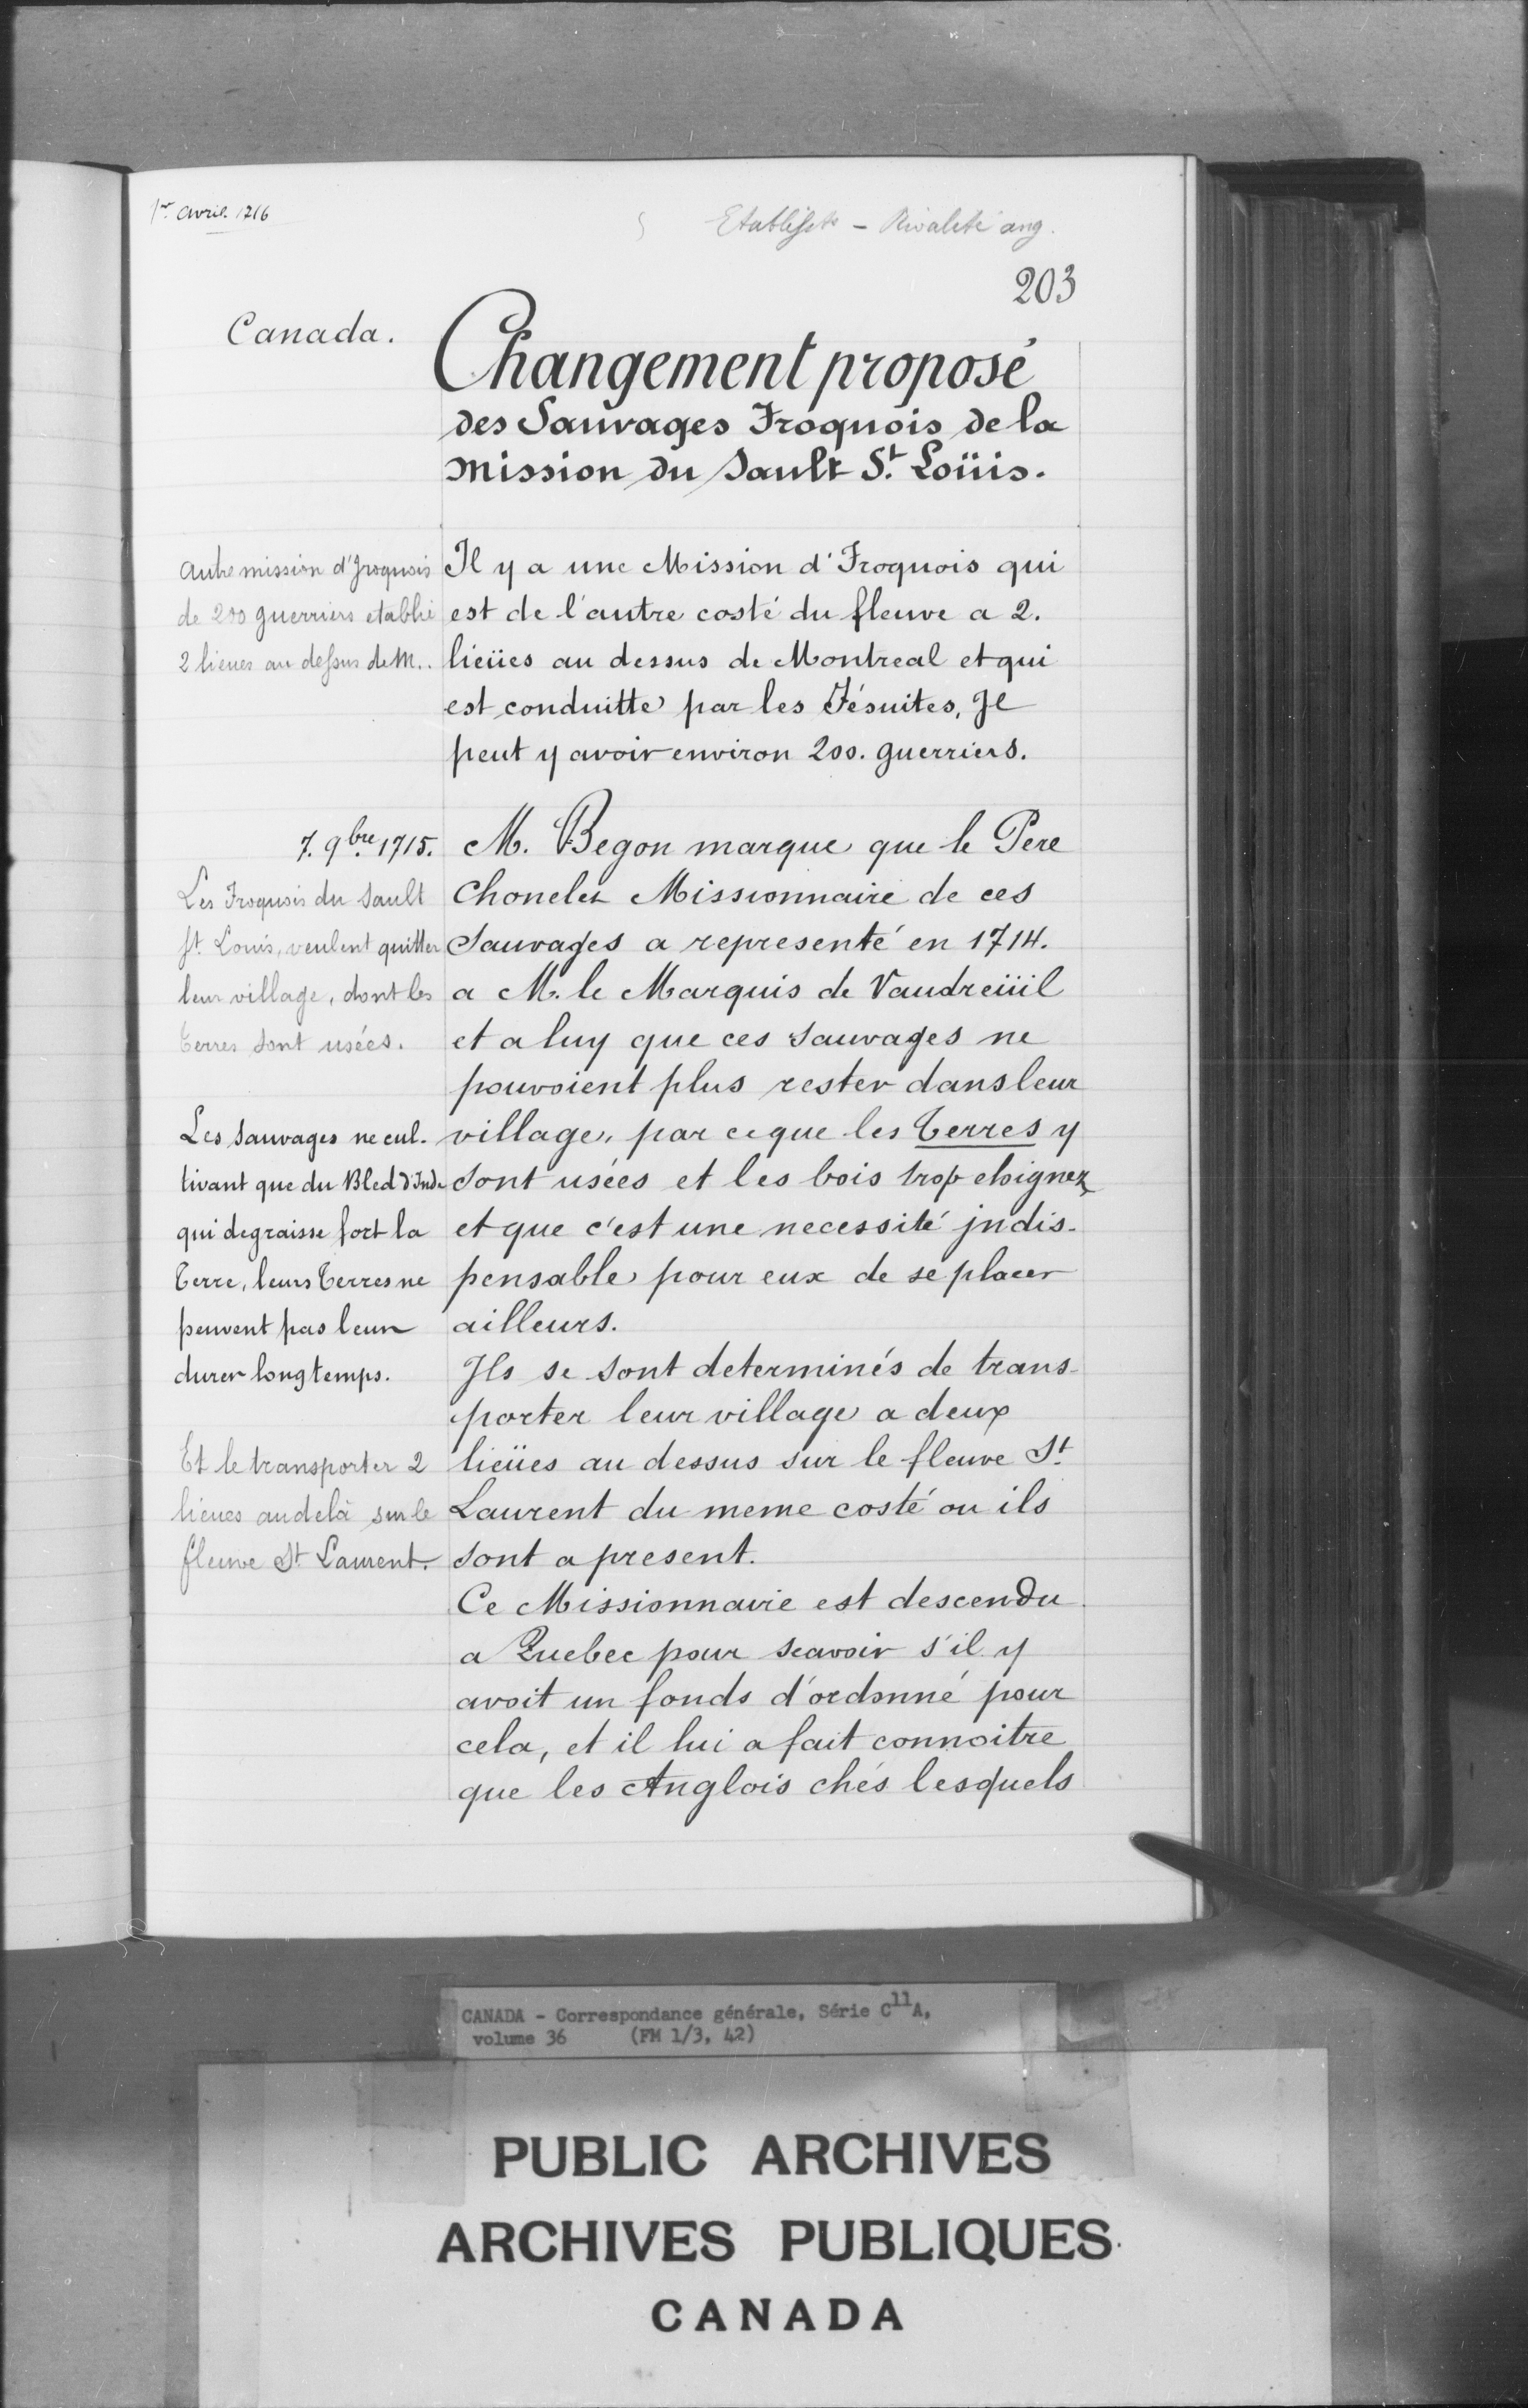 1er avril 1716
Etablissts - Rivalité ang.
203
Canada.
Changement proposé
des Sauvages Iroquois de la
Mission du Sault St. Loüis.
Autre mission d'Iroquois
de 200 guerriers etablie
2 lieues au dessus de M..
Il y a une Mission d'Iroquois qui
est de l'autre costé du fleuve a 2.
lieües au dessus de Montreal et qui
est conduitte par les Jésuites, Il
peut y avoir environ 200. guerriers.
7. 9bre 1715.
Les Iroquois du Sault
St. Louis, veulent quitter
leur village, dont les
terres sont usées.
Les Sauvages ne cul-
tivant que du Bled d'Inde
qui degraisse fort la
Terre, leurs Terres ne
peuvent pas leur
durer longtemps.
Et le transporter 2
lieues au delà sur le
fleuve St Laurent.
M. Begon marque que le Pere
Chonelez Missionnaire de ces
Sauvages a representé en 1714.
a M. le Marquis de Vaudreüil
et a luy que ces Sauvages ne
pouvoient plus rester dans leur
village, par ce que les Terres y
sont usées et les bois trop eloignez
et que c'est une necessité jndis-
pensable pour eux de se placer
ailleurs.
Ils se sont determinés de trans-
porter leur village a deux
lieües au dessus sur le fleuve St
Laurent du meme costé ou ils
sont a present.
Ce Missionnaire est descendu
a Quebec pour scavoir s'il y
avoit un fonds d'ordonné pour
cela, et il lui a fait connoitre
que les Anglois chés lesquels
CANADA - Correspondance générale, Série C11A,
volume 36 (FM 1/3, 42)
PUBLIC ARCHIVES
ARCHIVES PUBLIQUES
CANADA